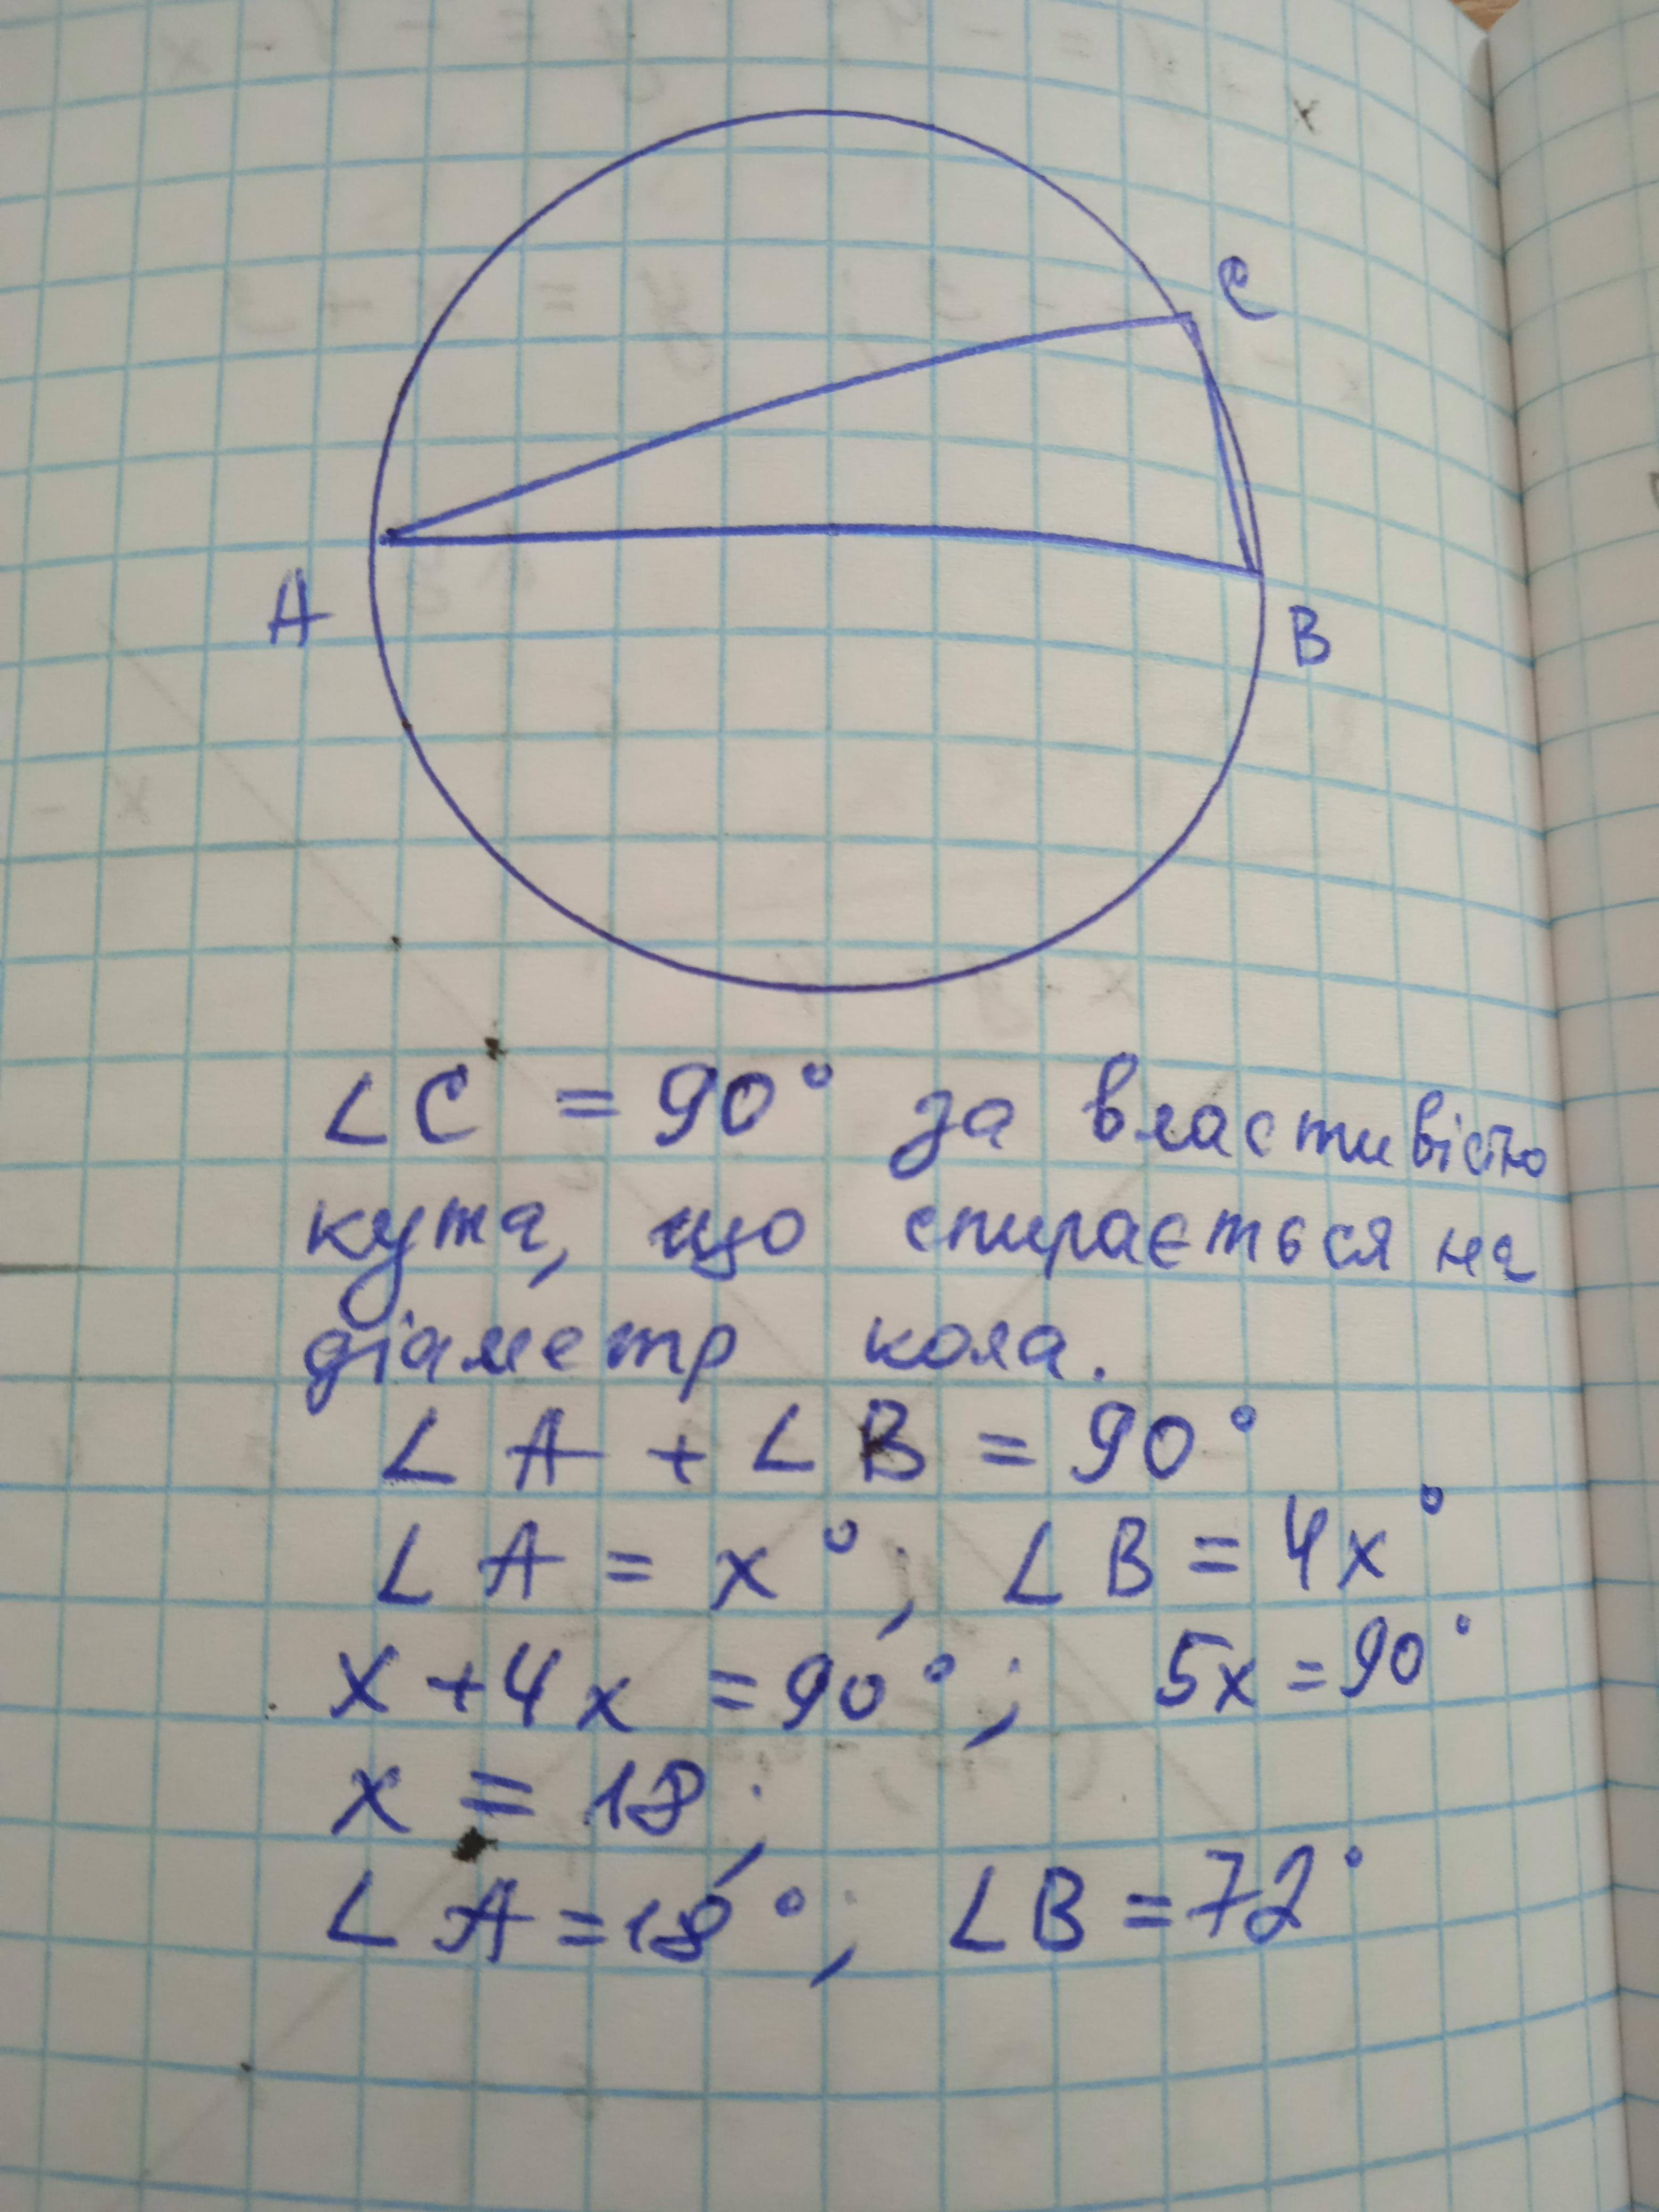 C
A
B
∠C = 90° за властивістю
кута, що спирається на
діаметр кола.
∠A + ∠B = 90°
∠A = x°; ∠B = 4x°
x + 4x = 90°; 5x = 90°
x = 18;
∠A = 18°; ∠B = 72°